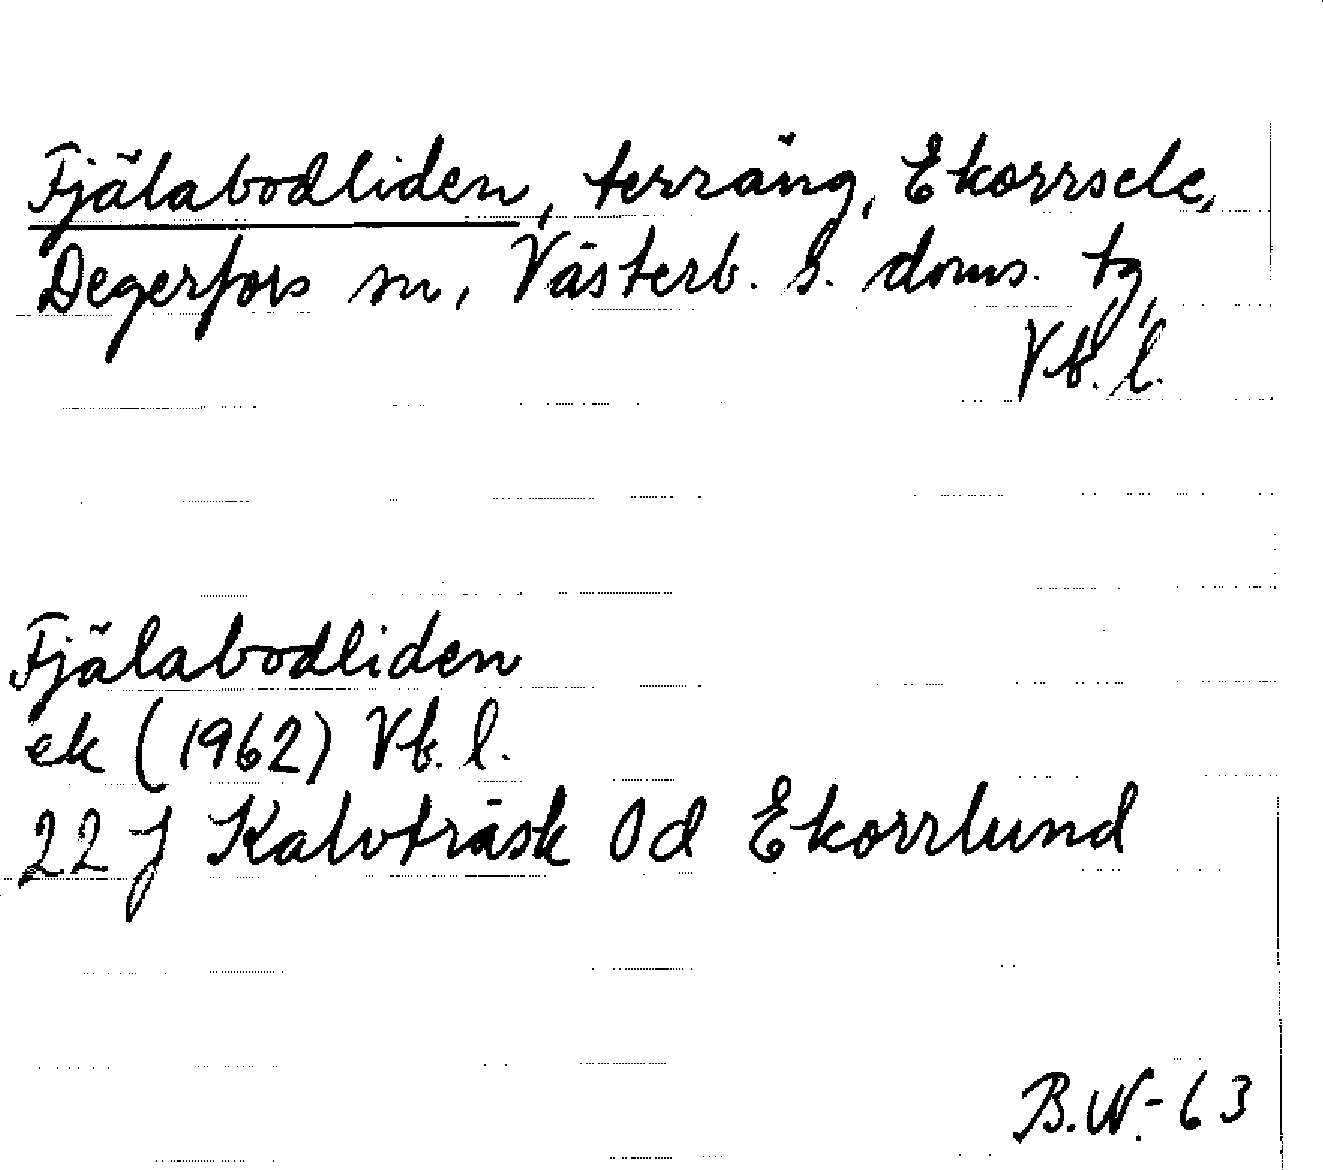 Fjälabodliden, terräng, Ekorrsele,
Degerfors sn, Västerb. s. doms. tg,
Vb. l.
Fjälabodliden
ek (1962) Vb. l.
22 J Kalvträsk 0d Ekorrlund
B.W.-63